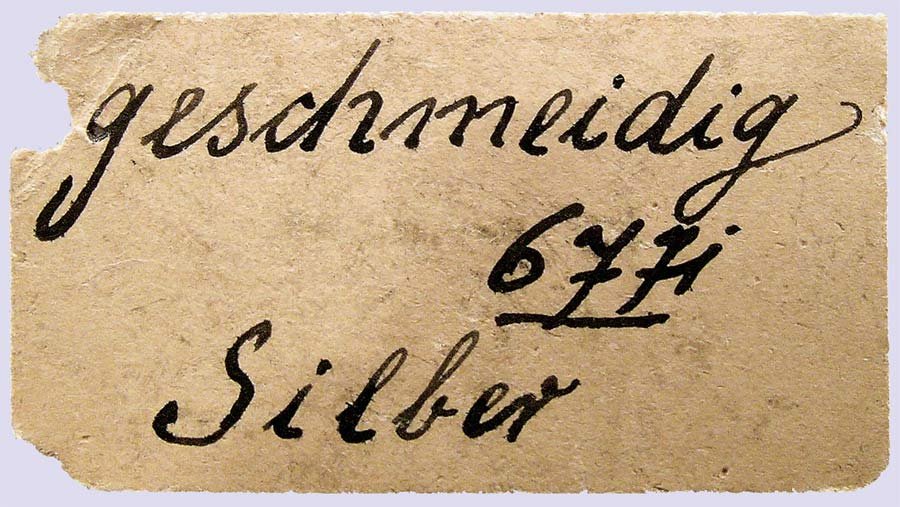 geschmeidig
677i
Silber